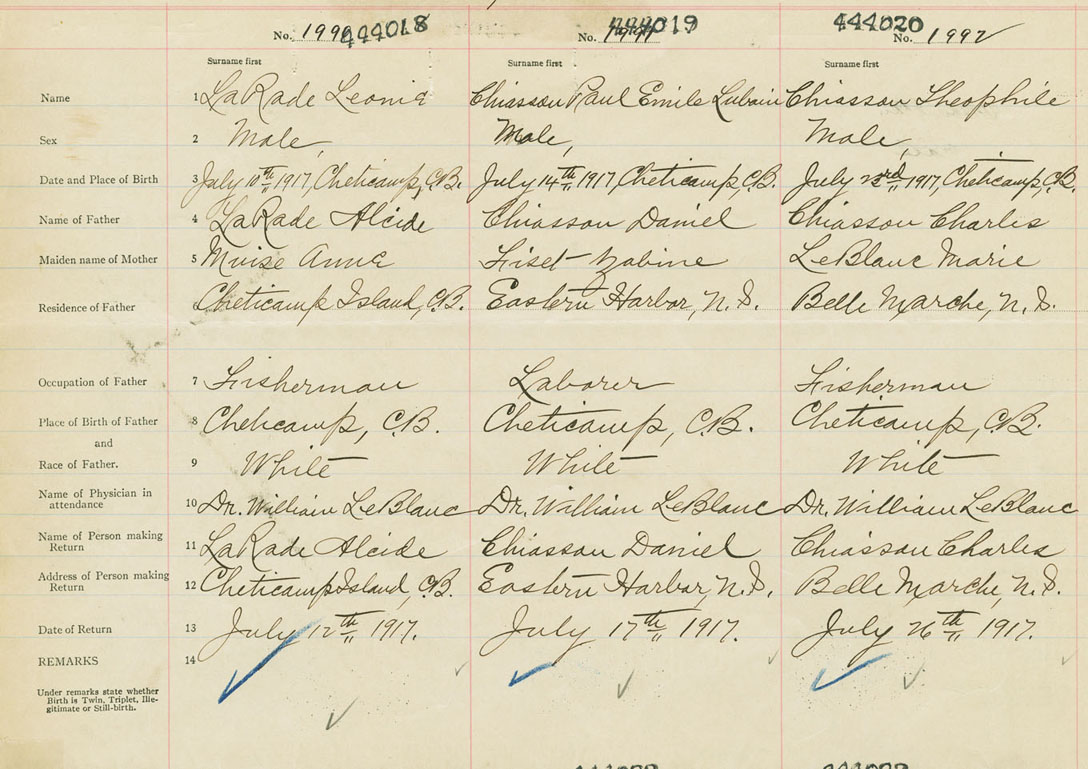 No. 1990 444018 No. 1991 444019 444020 No. 1992
Surname first Surname first Surname first
Name 1 LaRade Leonie Chiasson Paul Emile Lubain Chiasson Theophile
Sex 2 Male, Male, Male,
Date and Place of Birth 3 July 10th 1917, Cheticamp, C.B. July 14th 1917, Cheticamp, C.B. July 23rd 1917, Cheticamp, C.B.
Name of Father 4 LaRade Alcide Chiasson Daniel Chiasson Charles
Maiden name of Mother 5 Muise Anna Fiset LeBlanc Marie
Residence of Father 6 Cheticamp Island, C.B. Eastern Harbor, N.S. Belle Marche, N.S.
Occupation of Father 7 Fisherman Laborer Fisherman
Place of Birth of Father 8 Cheticamp, C.B. Cheticamp, C.B. Cheticamp, C.B.
and
Race of Father. 9 White White White
Name of Physician in
attendance 10 Dr. William LeBlanc Dr. William LeBlanc Dr. William LeBlanc
Name of Person making
Return 11 LaRade Alcide Chiasson Daniel Chiasson Charles
Address of Person making
Return 12 Cheticamp Island, C.B. Eastern Harbor, N.S. Belle Marche, N.S.
Date of Return 13 July 12th 1917. July 17th 1917. July 26th 1917.
REMARKS 14
Under remarks state whether
Birth is Twin, Triplet, Ille-
gitimate or Still-birth.